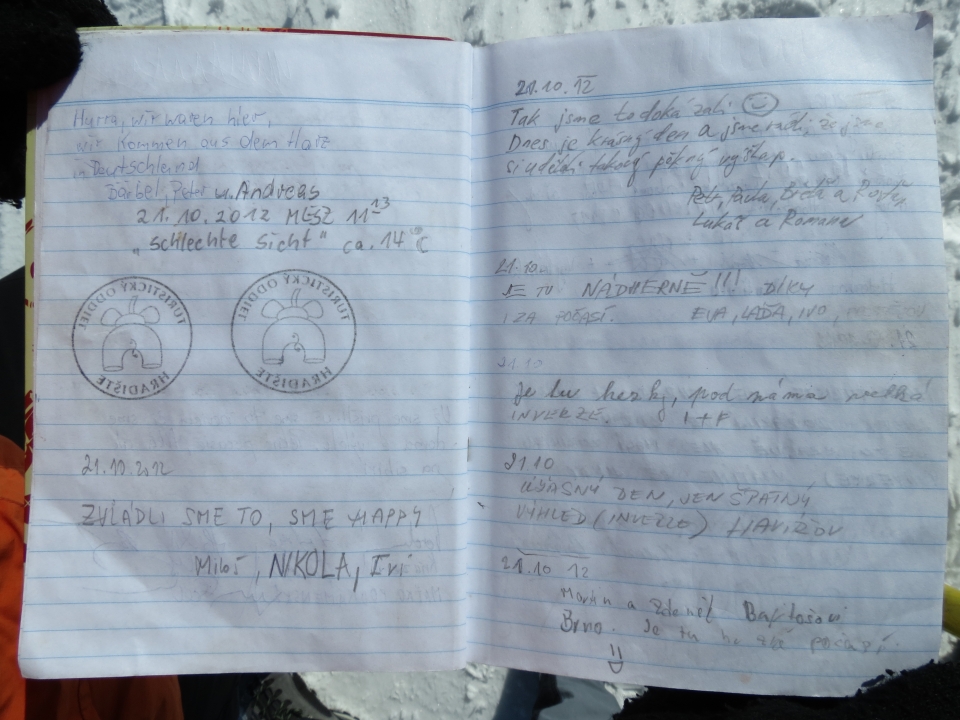 Hurra, wir waren hier,
wir kommen aus dem Harz
in Deutschland
Bärbel, Peter u. Andreas
21.10.2012 MESZ 11 13
"schlechte Sicht" ca. 14°C
TURISTICKÝ ODDIEL
HRADIŠTE
TURISTICKÝ ODDIEL
HRADIŠTE
21.10.2012
ZVLÁDLI SME TO, SME HAPPY
Miloš, NIKOLA, Ivi
21.10.12
Tak jsme to dokázali
Dnes je krásný den a jsme rádi, že jsme
si udělali takový pěkný výšlap.
Petr, a
Lukáš a Roman
21.10.
JE TU NÁDHERNĚ!!! DÍKY
I ZA POČASÍ. EVA, LAĎA, IVO,
21.10
Je tu hezky, pod náma velká
INVERZE. I+F
21.10
ÚŽASNÝ DEN, JEN ŠPATNÝ
VÝHLED (INVERZE) HAVÍŘOV
21.10 12
Martin a Zdeněk
Brno. Je tu počasí.